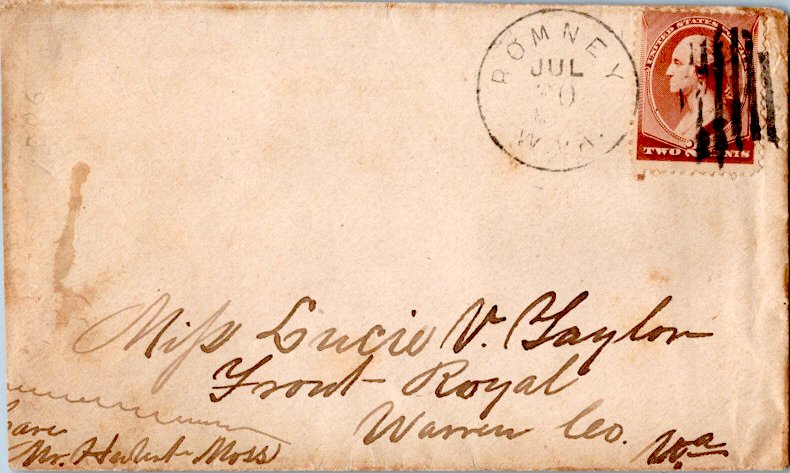 ROMNEY
JUL
W.VA.
UNITED STATES
TWO CENTS
Miss Lucie V. Taylor
Front Royal
Warren Co. Va
Care
Mr. Moss